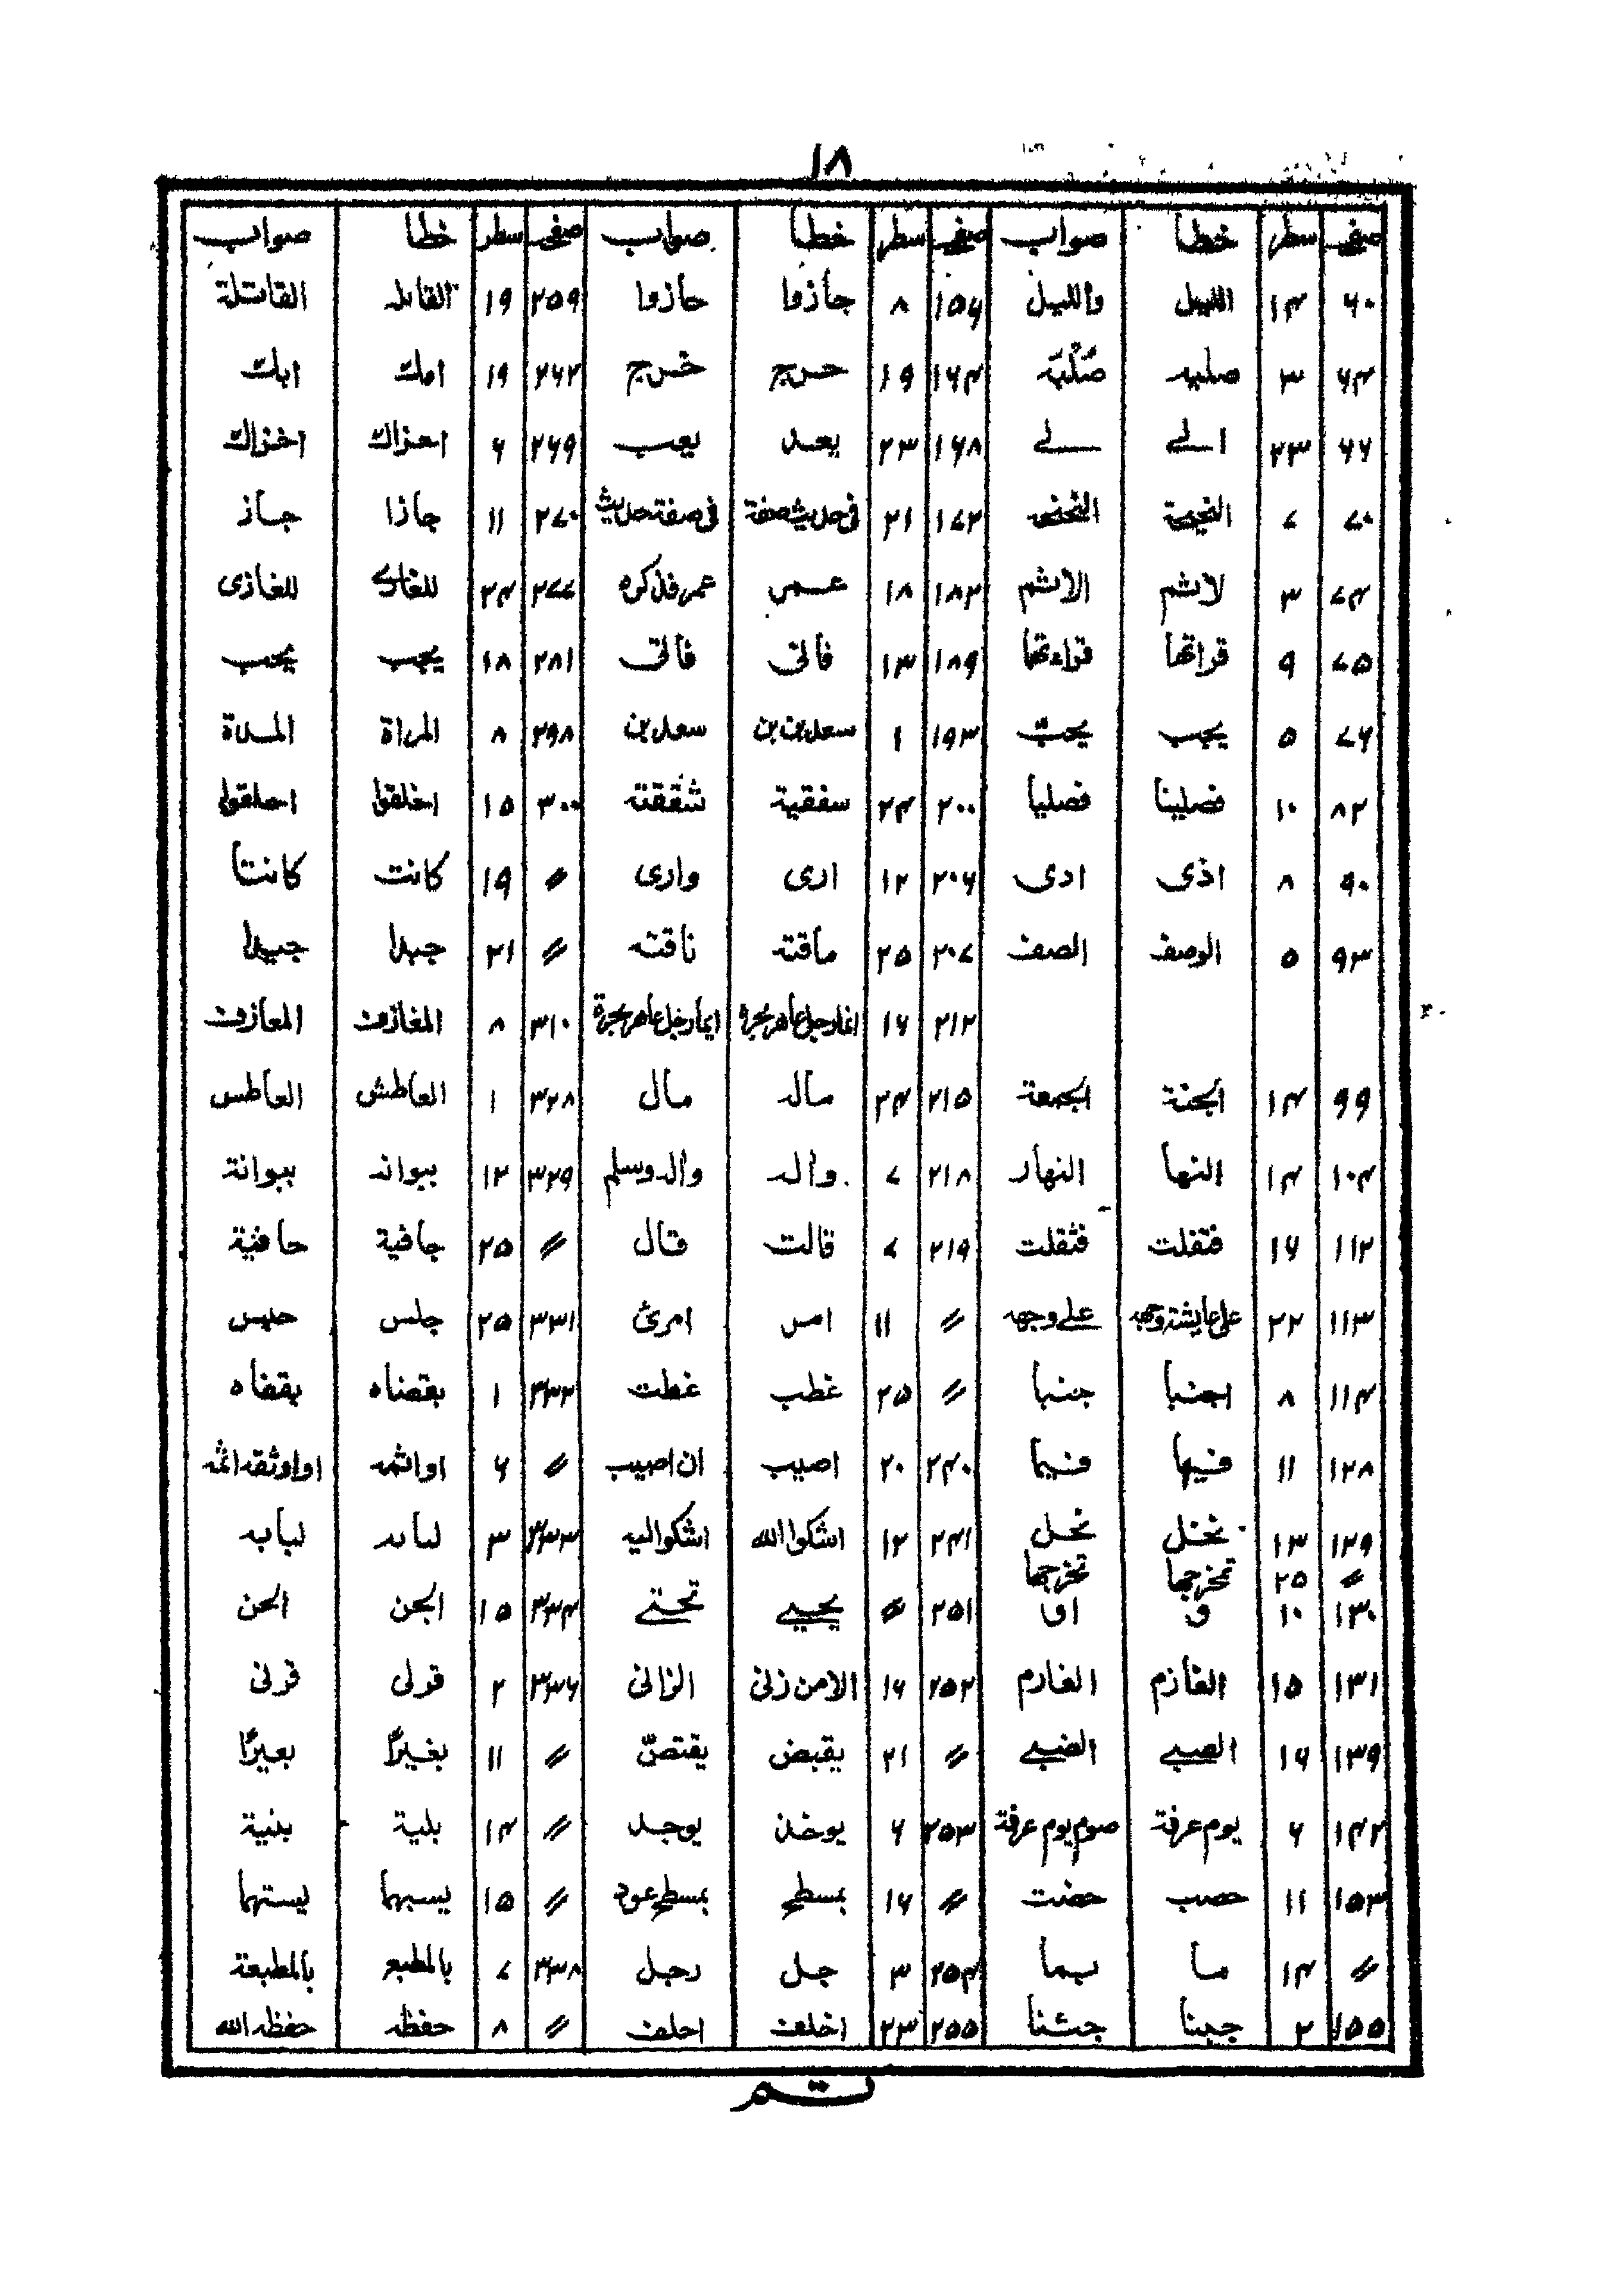 ١٨
صفحہ سطر خطأ صواب صفحہ سطر خطأ صواب صفحہ سطر خطأ صواب
٦٠ ١٤ اللیل واللیل ١٥٤ ٨ جاذوا حاذوا ٢٥٩ ١٩ القابلہ القاتلة
٦٤ ٣ صلبہ صُلْبَہ ١٦٤ ١٩ حرج خرج ٢٦٢ ١٩ امك ابك
٦٦ ٢٣ الے لے ١٦٨ ٢٣ یعد یعب ٢٦٩ ٦ احزاك اخزاك
٧٠ ٧ ١٧٢ ٢١ فی حدیث صفة فی صفة حدیث ٢٧٠ ١١ جاذا جاز
٧٤ ٣ لاشم الاشم ١٨٢ ١٨ عمر عمر فذکره ٢٧٧ ٢٤ للغازی
٧٥ ٩ قراتها قراءتها ١٨٩ ١٣ فالی فالی ٢٨١ ١٨ یجب یحب
٧٦ ٥ یجب یحبّ ١٩٣ ١ سعد بن بن سعد بن ٢٩٨ ٨ المراة المدة
٨٢ ١٠ فصلینا فصلیا ٢٠٠ ٢٤ سفقیة شفقته ٣٠٠ ١٥
٩٠ ٨ اذی ادی ٢٠٦ ١٢ اری واری 〃 ١٩ کانت کانتا
٩٣ ٥ الوصف الصف ٢٠٧ ٢٥ ماقته ناقته 〃 ٢١ جبلا جبیلا
٢١٢ ١٦ انما رجل عاهر بحرة ایما رجل عاهر بحرة ٣١٠ ٨ المغازف المعازف
٩٩ ١٤ الجنة الجمعة ٢١٥ ٢٤ مالہ مال ٣٢٨ ١ العاطش العاطس
١٠٤ ١٤ النها النهار ٢١٨ ٧ والہ والہ وسلم ٣٢٩ ١٢ ببوانہ ببوانة
١١٢ ١٦ فتقلت فثقلت ٢١٩ ٧ قالت قال 〃 ٢٥ جافیة حافیة
١١٣ ٢٢ علی عایشة وجہہ علے وجہہ 〃 ١١ امر امرئ ٣٣١ ٢٥ جلس حلیس
١١٤ ٨ اجنبا جنبا 〃 ٢٥ غطب غطت ٣٣٢ ١ بقصناه بقضاه
١٢٨ ١١ فیها فیما ٢٤٠ ٢٠ اصیب ان اصیب 〃 ٦ اواثمہ
١٢٩ ١٣ نخل نحل ٢٤١ ١٢ اشکوا الله اشکوا الیہ ٣٣٣ ٣ لبابہ
〃 ٢٥ تمخرجها تخرجها
١٣٠ ١٠ و او ٢٥١ 〃 یحیے تحتے ٣٣٤ ١٥ الجن الحن
١٣١ ١٥ الغازم الغارم ٢٥٢ ١٦ الامن زنی الزانی ٣٣٦ ٢ قولی قرنی
١٣٩ ١٦ الصبے الضبے 〃 ٢١ یقبض یقتصّ 〃 ١١ بغیرًا بعیرًا
١٤٢ ٦ یوم عرفة صوم یوم عرفة ٢٥٣ ٦ یوخذ یوجد 〃 ١٤ بلیة بنیة
١٥٣ ١١ حصب حضت 〃 ١٦ بمسطح بمسطح عود 〃 ١٥ یسبهما یستهما
〃 ١٤ ما بما ٢٥٤ ٣ جل رجل ٣٣٨ ٧ بالمطبعہ بالمطبعة
١٥٥ ٢ جبنا جئنا ٢٥٥ ٢٣ اخلف احلف 〃 ٨ حفظہ حفظہ الله
تم